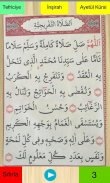 Tefriciye İnşirah Ayetül Kürsi
اَلصَّلَاةُ التَّفْرِيجِيَّةُ
اَللّٰهُمَّ صَلِّ صَلَاةً كَامِلَةً وَسَلِّمْ
سَلَامًا تَامًّا عَلٰى سَيِّدِنَا مُحَمَّدٍ
الَّذِى تَنْحَلُّ بِهِ الْعُقَدُ
وَتَنْفَرِجُ بِهِ الْكُرَبُ وَتُقْضٰى بِهِ
الْحَوَائِجُ وَتُنَالُ بِهِ الرَّغَائِبُ
وَحُسْنُ الْخَوَاتِمِ وَيُسْتَسْقَى الْغَمَامُ
بِوَجْهِهِ الْكَرِيمِ وَعَلٰى اٰلِهِ وَصَحْبِهِ
فِى كُلِّ لَمْحَةٍ وَنَفَسٍ بِعَدَدِ كُلِّ مَعْلُومٍ لَكَ
Sıfırla 3